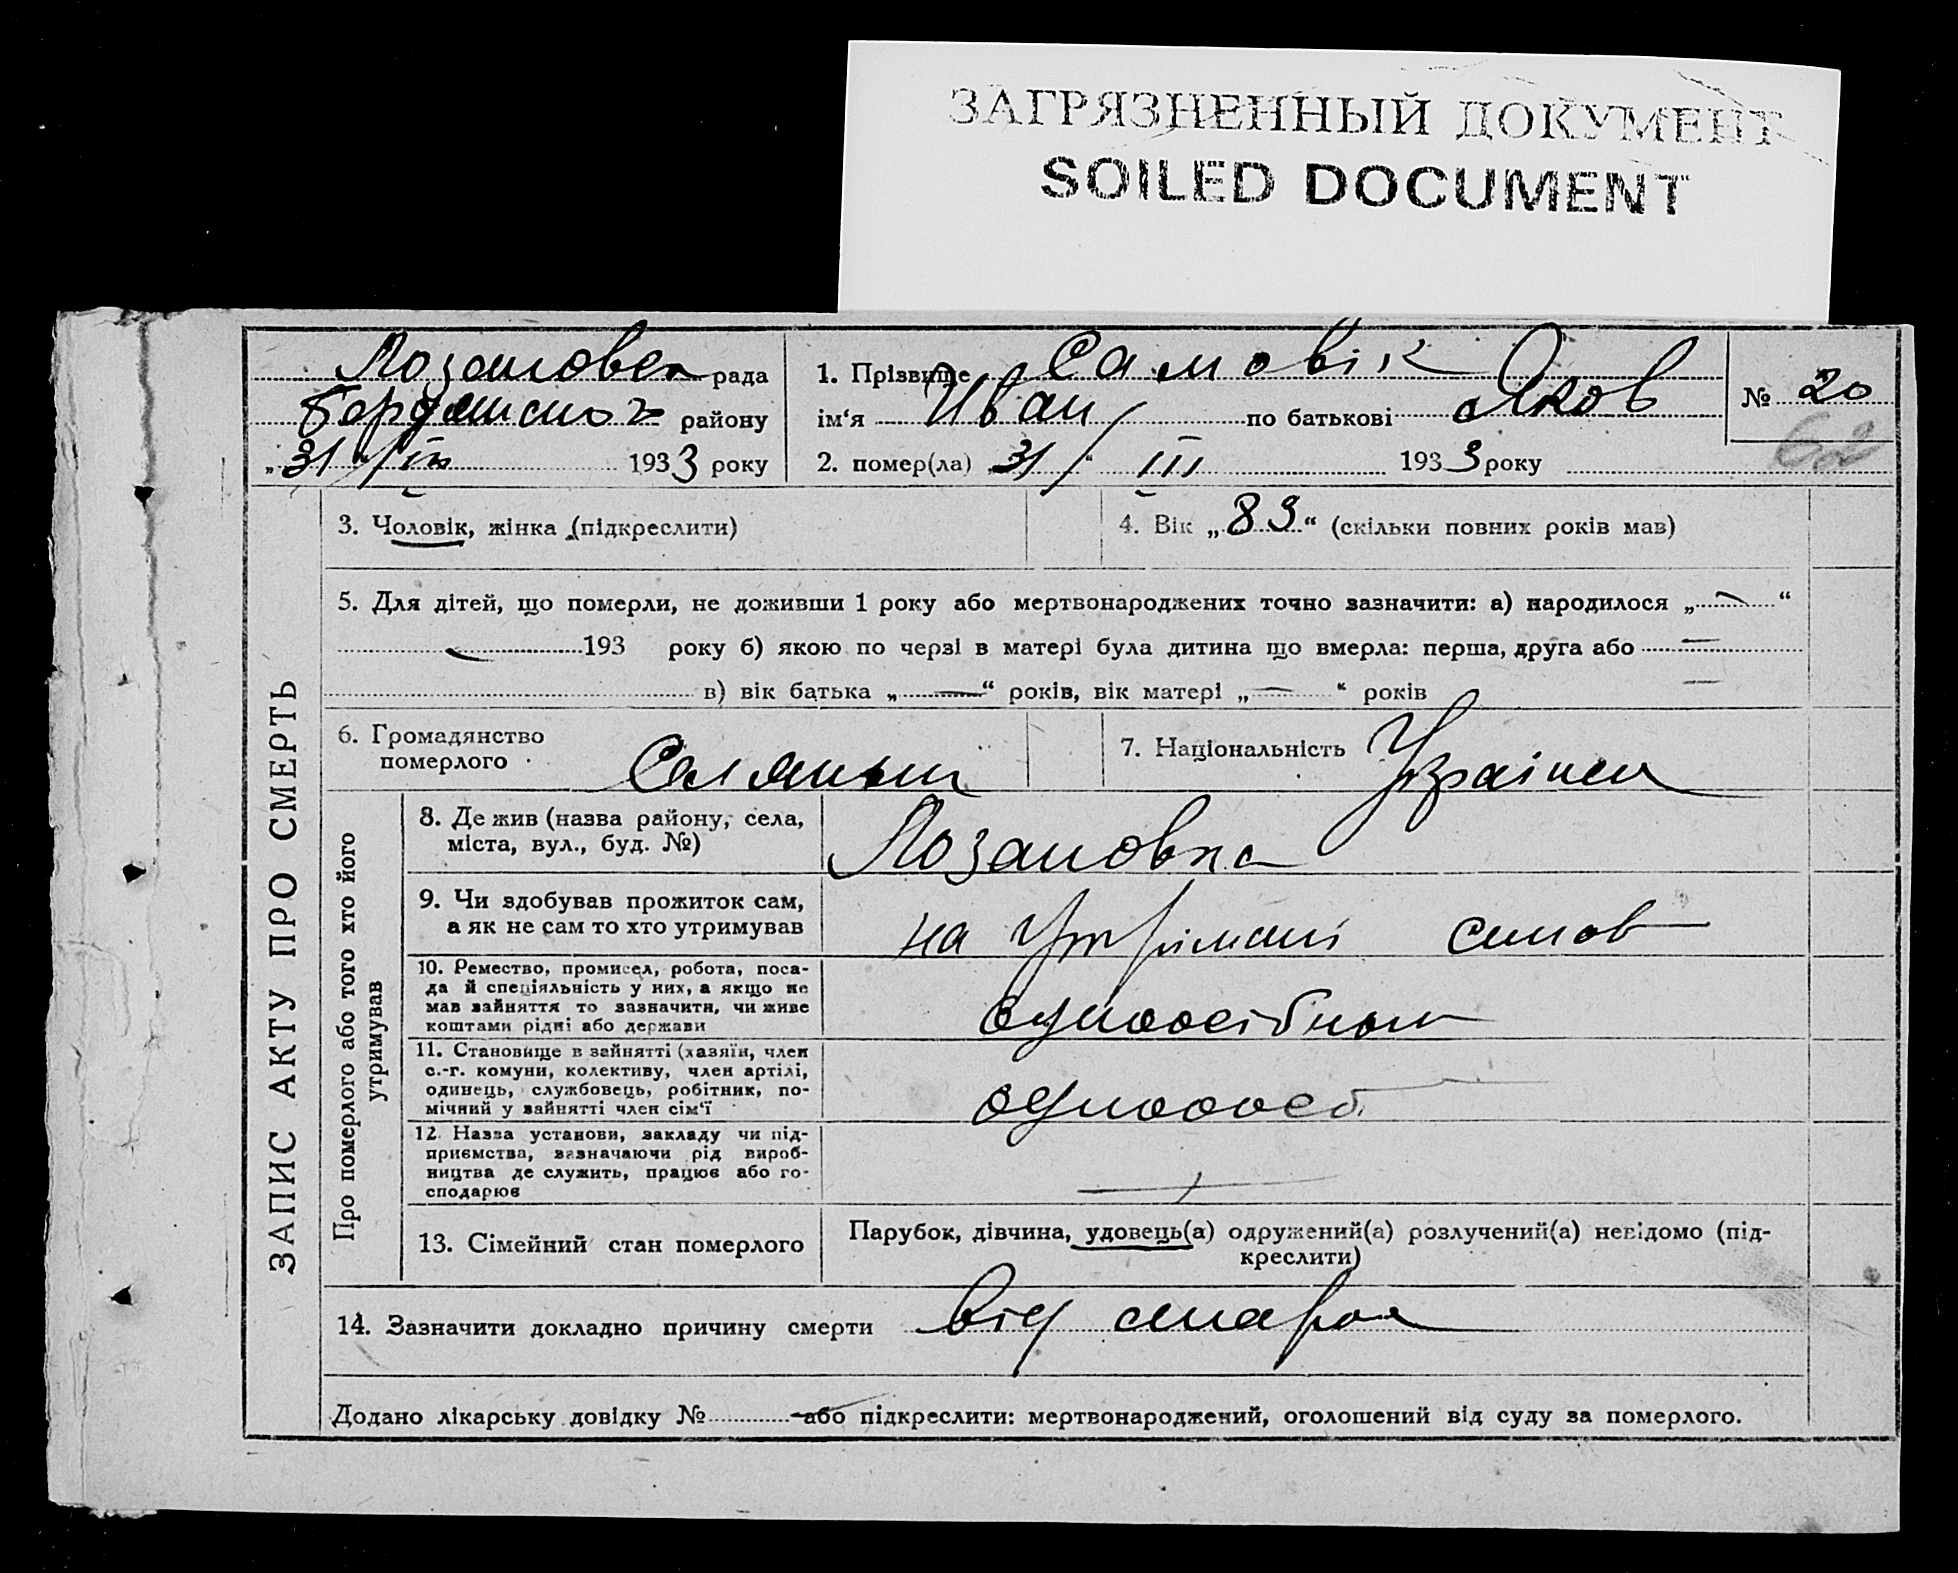 ЗАГРЯЗНЕННЫЙ ДОКУМЕНТ
SOILED DOCUMENT
Лозановск рада
району
„31“ ІІІ 1933 року
1. Прізвище Самовік
ім‘я Иван по батькові Яков
2. помер(ла) „31“ ІІІ 1933 року
№ 20
62
ЗАПИС АКТУ ПРО СМЕРТЬ
3. Чоловік, жінка (підкреслити)
4. Вік „83“ (скільки повних років мав)
5. Для дітей, що померли, не доживши 1 року або мертвонароджених точно зазначити: а) народилося „—“
193 року б) якою по черзі в матері була дитина що вмерла: перша, друга або
в) вік батька „—“ років, вік матері „—“ років
6. Громадянство
померлого Селянын
7. Національність Українец
Про померлого або того хто його
утримував
8. Де жив (назва району, села,
міста, вул., буд. №)
Лозановка
9. Чи здобував прожиток сам,
а як не сам то хто утримував
на утрімані синов
10. Ремество, промисел, робота, поса-
да й спеціяльність у них, а якщо не
мав зайняття то зазначити, чи живе
коштами рідні або держави
одноосібнык
11. Становище в зайнятті (хазяїн, член
с.-г. комуни, колективу, член артілі,
одинець, службовець, робітник, по-
мічний у зайнятті член сім‘ї
одноособ
12. Назва установи, закладу чи під-
приємства, зазначаючи рід вироб-
ництва де служить, працює або го-
сподарює
—
13. Сімейний стан померлого
Парубок, дівчина, удовець(а) одружений(а) розлучений(а) невідомо (під-
креслити)
14. Зазначити докладно причину смерти від старои
Додано лікарську довідку № або підкреслити: мертвонароджений, оголошений від суду за померлого.